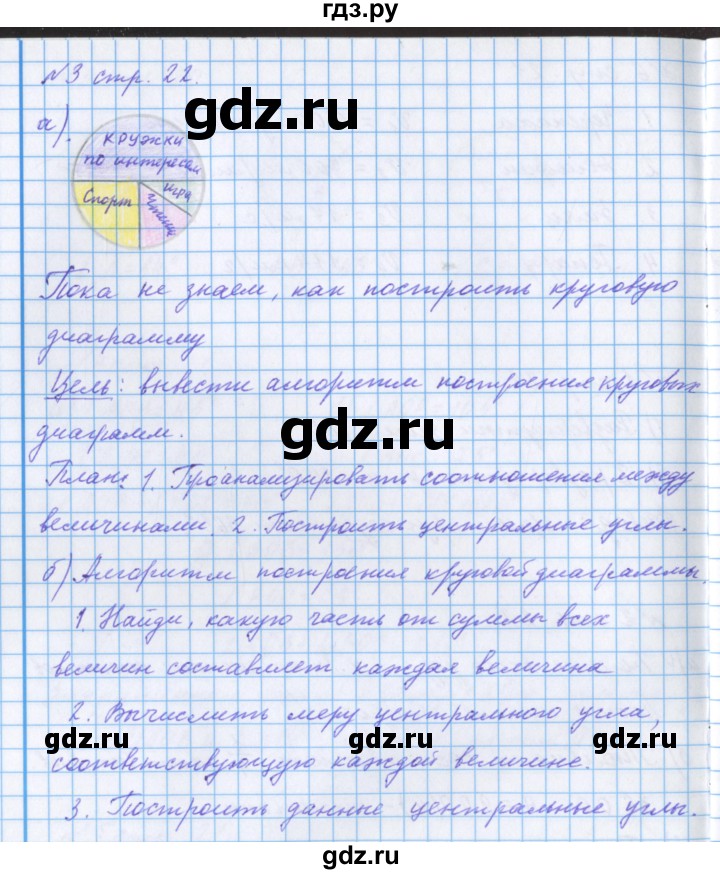 гдз.ру
№3 стр. 22.
gdz.ru
а).
кружки
по интересам
Спорт
Чтение
игра
Пока не знаем, как построить круговую
диаграмму
Цель: вывести алгоритм построения круговых
gdz.ru
диаграмм.
План: 1. Проанализировать соотношения между
величинами. 2. Построить центральные углы.
б) Алгоритм построения круговой диаграммы.
1. Найди, какую часть от суммы всех
величин составляет каждая величина
2. Вычислить меру центрального угла,
gdz.ru gdz.ru gdz.ru
соответствующую каждой величине.
3. Построить данные центральные углы.
gdz.ru